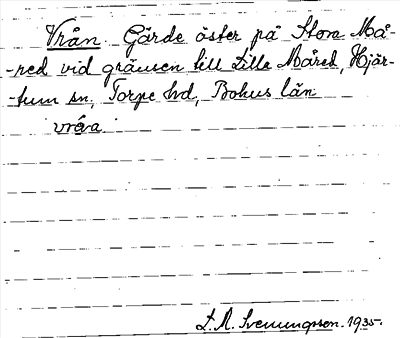 Vrån. Gärde öster på Stora Må-
-red vid gränsen till Lilla Måred, Hjär-
-tum sn, Torpe hd, Bohus län
vråa.
L. M. Svenungsson. 1935.